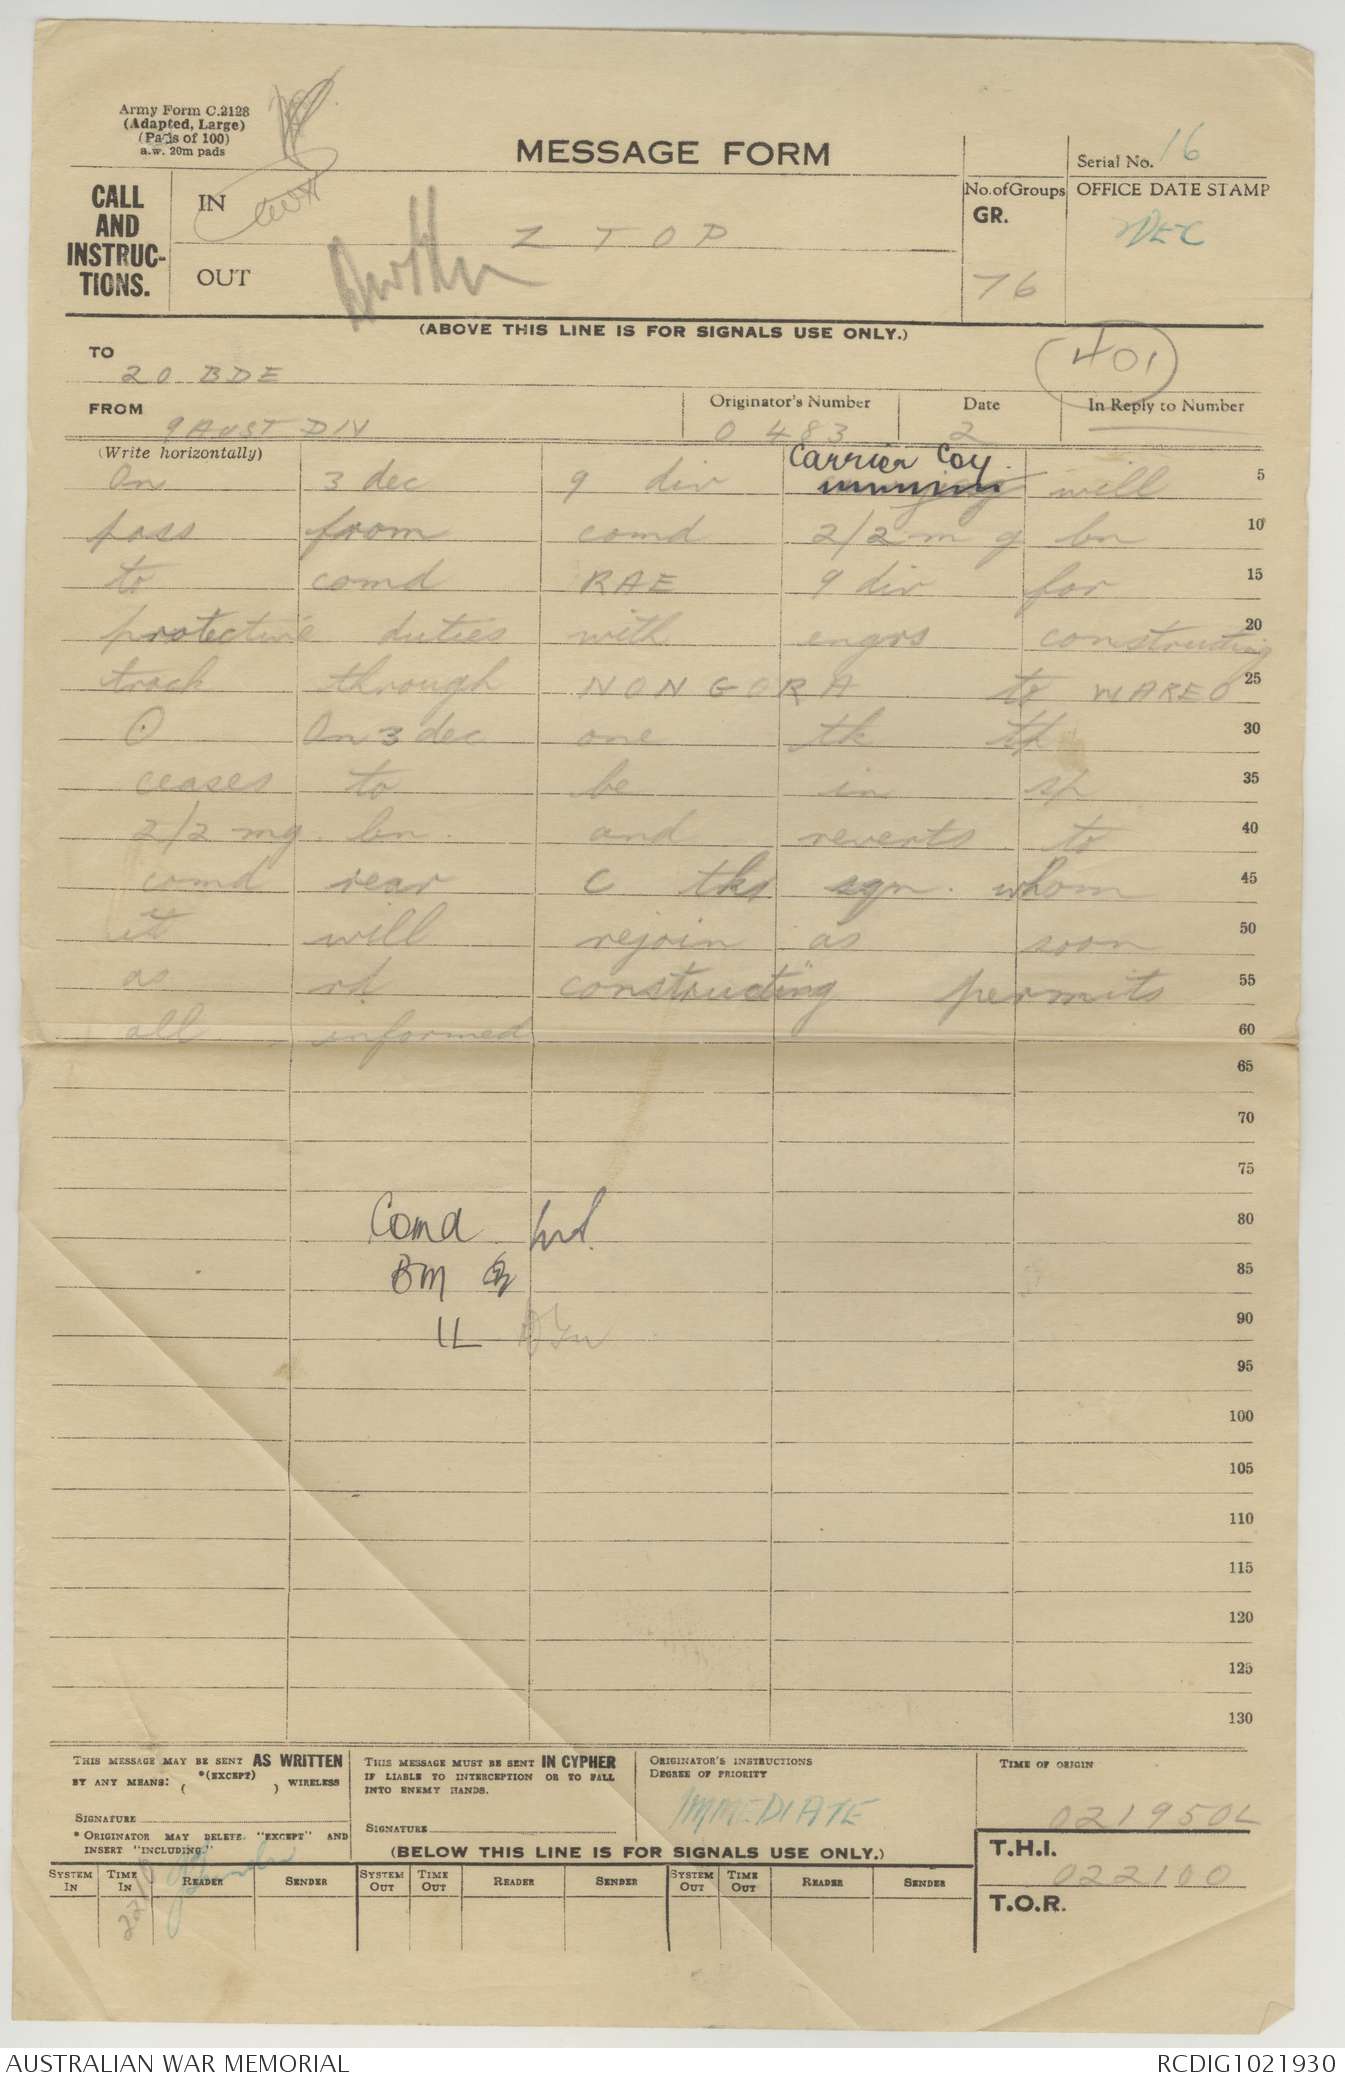 Army Form C.2128
(Adapted, Large)
(Pads of 100)
a.w. 20m pads
MESSAGE FORM
Serial No. 16
CALL
AND
INSTRUC-
TIONS.
IN
OUT
Z TOP
No. of Groups
GR.
76
OFFICE DATE STAMP
(ABOVE THIS LINE IS FOR SIGNALS USE ONLY.)
TO
20 BDE
401
FROM
9 AUST DIV
Originator's Number
O 483
Date
2
In Reply to Number
(Write horizontally)
Carrier Coy.
On 3 dec 9 div will 5
pass from comd 2/2 mg bn 10
to comd RAE 9 div for 15
protective duties with engrs constructing 20
track through NONGORA to WAREO 25
On 3 dec one tk tp 30
ceases to be in sp 35
2/2 mg. bn. and reverts to 40
comd rear C tks sqn. whom 45
it will rejoin as soon 50
as rd constructing permits 55
all informed 60
65
70
75
Comd 80
BM 85
IL 90
95
100
105
110
115
120
125
130
THIS MESSAGE MAY BE SENT AS WRITTEN
BY ANY MEANS: *(EXCEPT) ( ) WIRELESS
SIGNATURE
* ORIGINATOR MAY DELETE "EXCEPT" AND
INSERT "INCLUDING."
THIS MESSAGE MUST BE SENT IN CYPHER
IF LIABLE TO INTERCEPTION OR TO FALL
INTO ENEMY HANDS.
SIGNATURE
ORIGINATOR'S INSTRUCTIONS
DEGREE OF PRIORITY
IMMEDIATE
TIME OF ORIGIN
021950L
(BELOW THIS LINE IS FOR SIGNALS USE ONLY.)
T.H.I.
022100
T.O.R.
SYSTEM IN
TIME IN
READER
SENDER
SYSTEM OUT
TIME OUT
READER
SENDER
SYSTEM OUT
TIME OUT
READER
SENDER
2210
AUSTRALIAN WAR MEMORIAL
RCDIG1021930